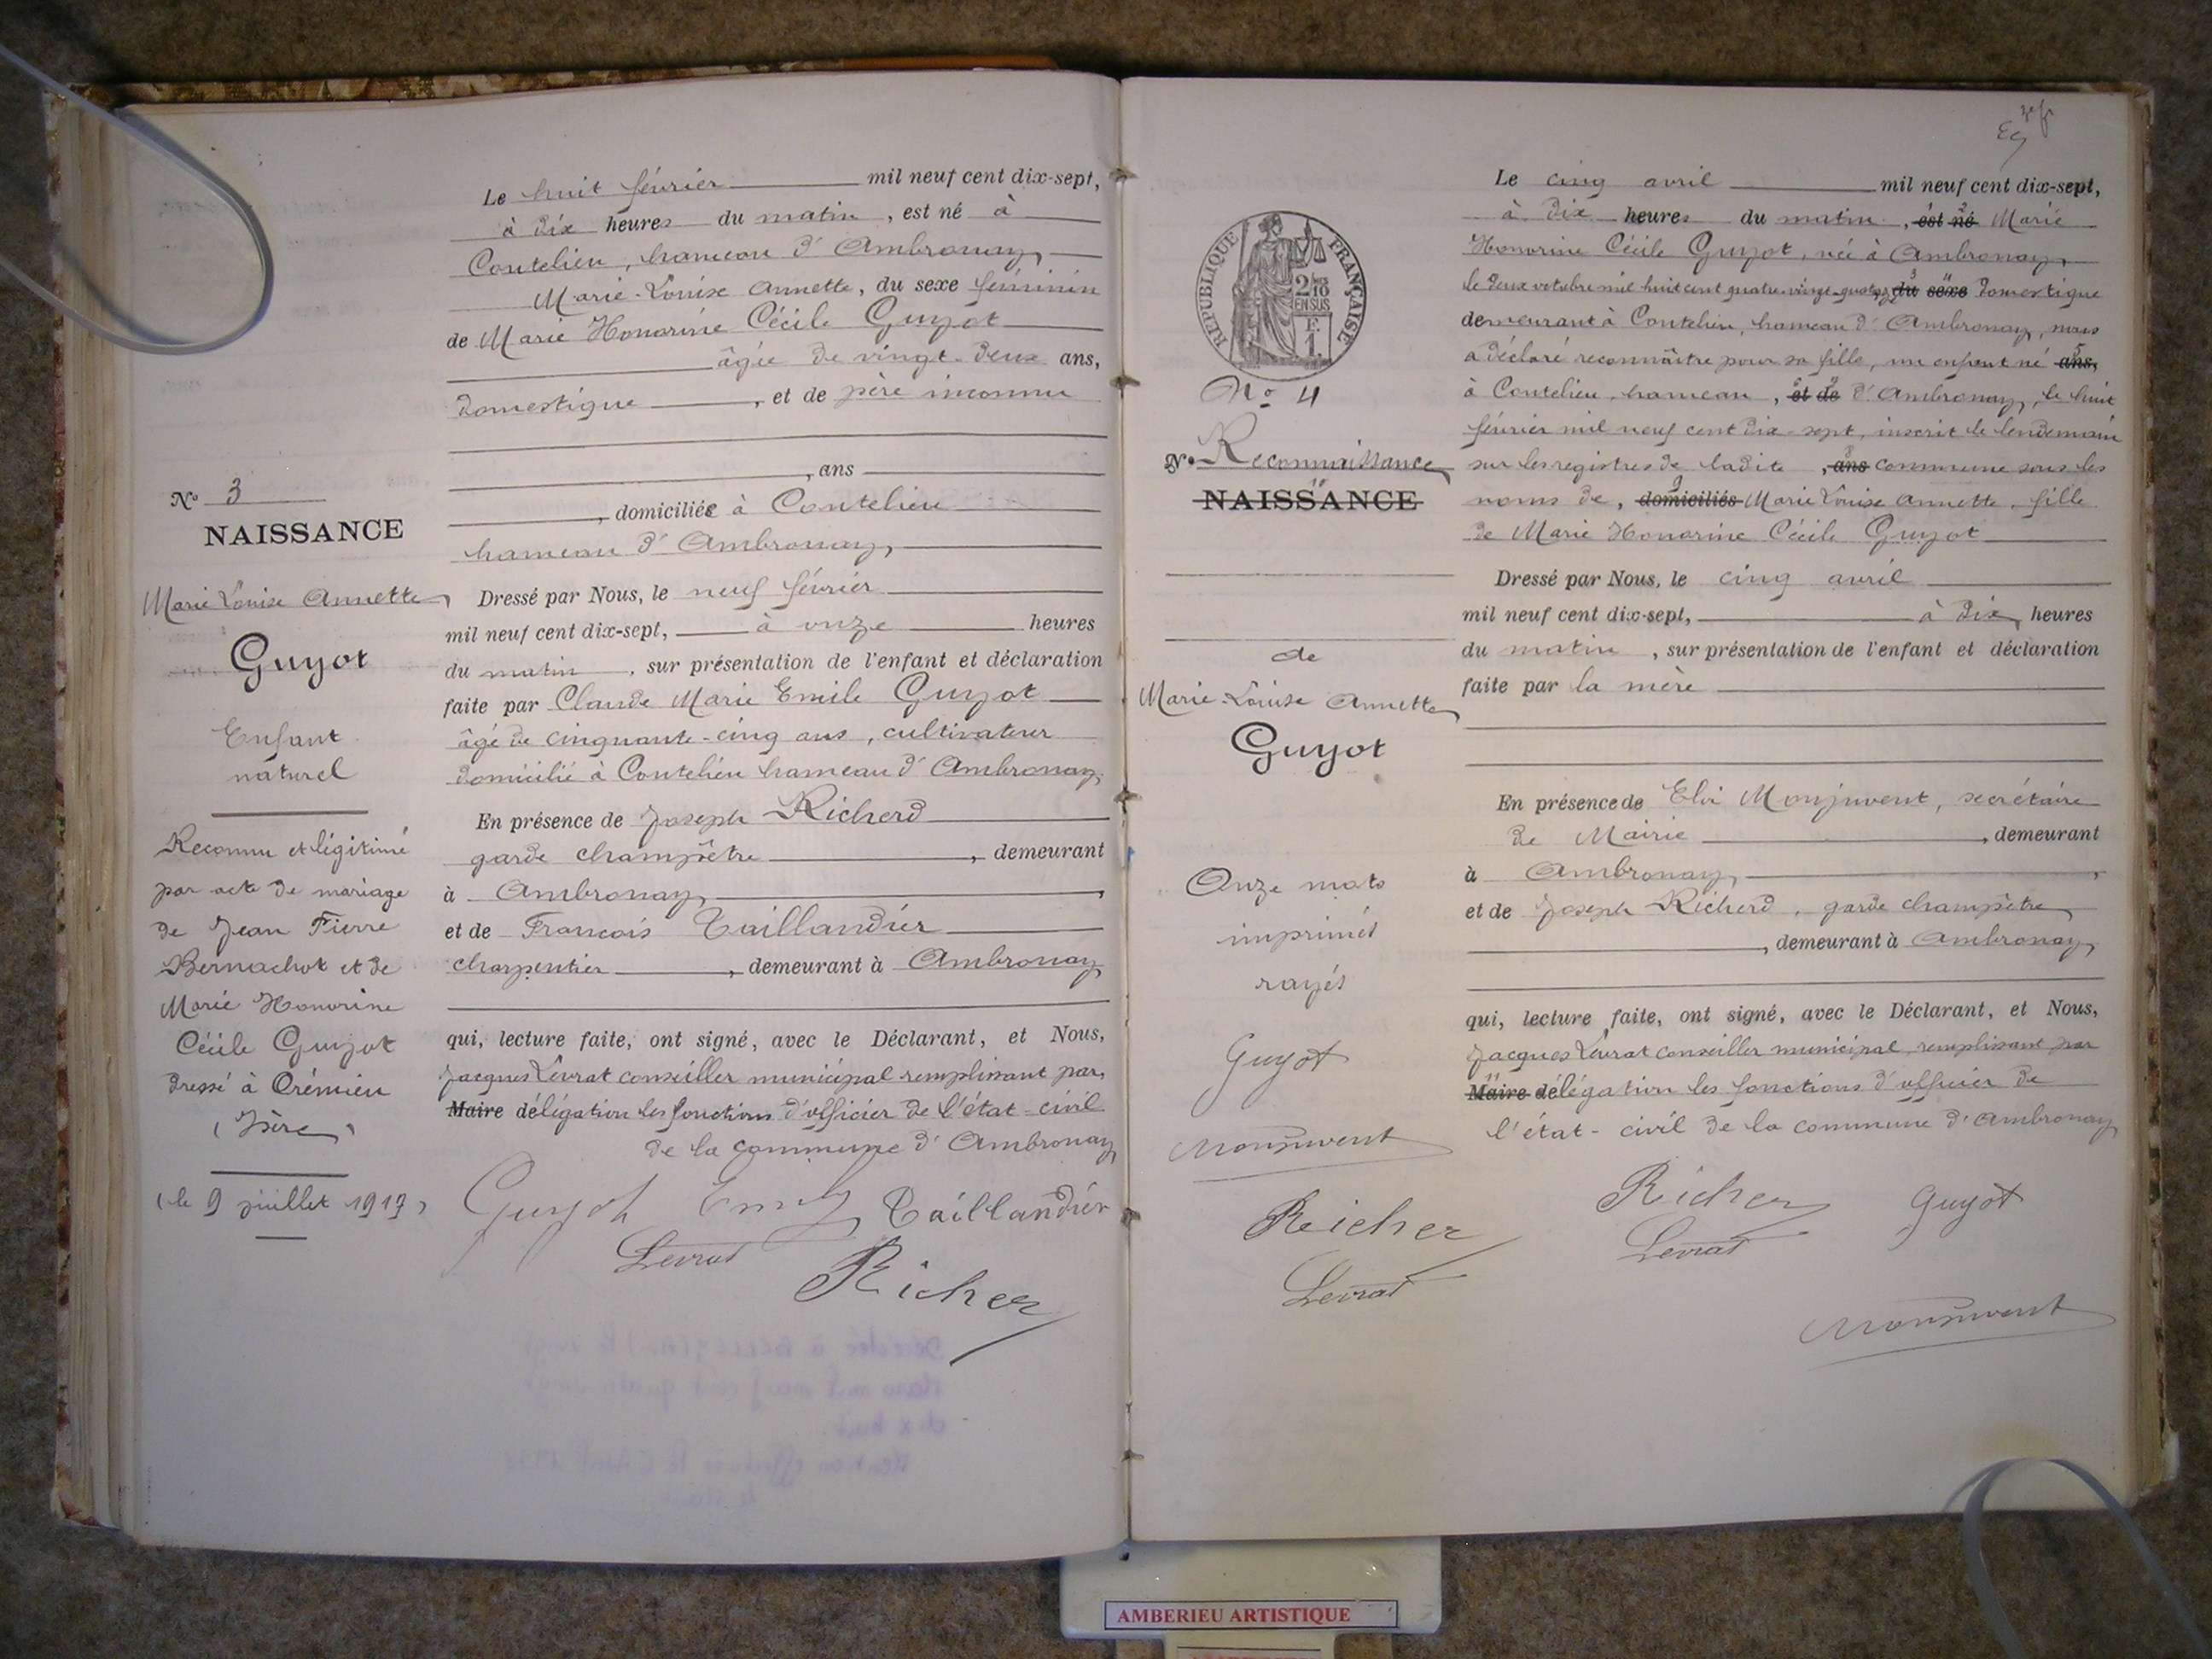 Le huit février mil neuf cent dix-sept,
à dix heures du matin, est né à
Coutelieu, hameau d'Ambronay,
Marie-Louise Annette, du sexe féminin
de Marie Honorine Cécile Guyot
âgée de vingt-deux ans,
domestique, et de père inconnu
, ans
, domiciliée à Coutelieu
hameau d'Ambronay,
N° 3
NAISSANCE
Marie Louise Annette
Guyot
Enfant
naturel
Reconnu et légitimé
par acte de mariage
de Jean Pierre
Bernachot et de
Marie Honorine
Cécile Guyot
dressé à Crémieu
(Isère)
(le 9 juillet 1917)
Dressé par Nous, le neuf février
mil neuf cent dix-sept, à onze heures
du matin, sur présentation de l'enfant et déclaration
faite par Claude Marie Emile Guyot
âgé de cinquante-cinq ans, cultivateur
domicilié à Coutelieu hameau d'Ambronay,
En présence de Joseph Richerd
garde champêtre, demeurant
à Ambronay,
et de François Taillandier
charpentier, demeurant à Ambronay
qui, lecture faite, ont signé, avec le Déclarant, et Nous,
Jacques Levrat conseiller municipal remplissant par,
Maire délégation les fonctions d'officier de l'état-civil
de la commune d'Ambronay
Guyot Emile Taillandier
Levrat
Richer
RÉPUBLIQUE FRANÇAISE
2/10
EN SUS
F.
1
N° 4
N° Reconnaissance
NAISSANCE
de
Marie-Louise Annette
Guyot
Onze mots
imprimés
rayés
Guyot
Monjuvent
Richer
Levrat
Le cinq avril mil neuf cent dix-sept,
à dix heures du matin, est né Marie
Honorine Cécile Guyot, née à Ambronay,
le deux octobre mil huit cent quatre-vingt-quatorze du sexe domestique
demeurant à Coutelieu, hameau d'Ambronay, nous
a déclaré reconnaître pour sa fille, un enfant né ans,
à Coutelieu, hameau, et de d'Ambronay, le huit
février mil neuf cent dix-sept, inscrit le lendemain
sur les registres de ladite, ans commune sous les
noms de, domiciliés Marie Louise Annette, fille
de Marie Honorine Cécile Guyot
Dressé par Nous, le cinq avril
mil neuf cent dix-sept, à dix heures
du matin, sur présentation de l'enfant et déclaration
faite par la mère
En présence de Eloi Monjuvent, secrétaire
de Mairie, demeurant
à Ambronay,
et de Joseph Richerd, garde champêtre
, demeurant à Ambronay,
qui, lecture faite, ont signé, avec le Déclarant, et Nous,
Jacques Levrat conseiller municipal remplissant par
Maire délégation les fonctions d'officier de
l'état-civil de la commune d'Ambronay
Richer Guyot
Levrat
Monjuvent
AMBERIEU ARTISTIQUE